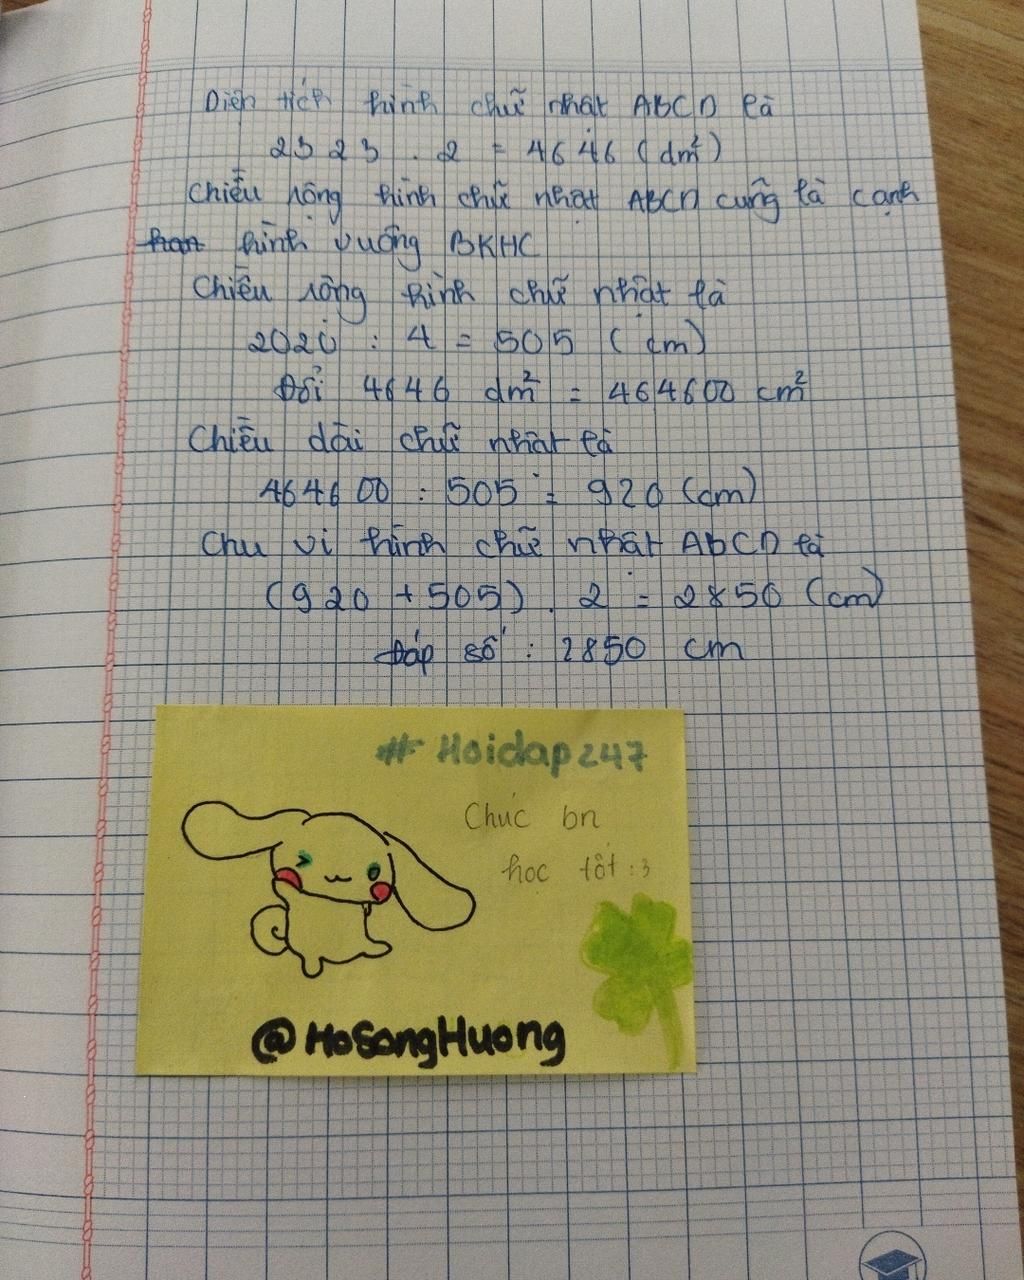 Diện tích hình chữ nhật ABCD là
2323 . 2 = 4646 (dm²)
Chiều rộng hình chữ nhật ABCD cũng là cạnh
hình vuông BKHC
Chiều rộng hình chữ nhật là
2020 : 4 = 505 (cm)
Đổi 4646 dm² = 464600 cm²
Chiều dài chữ nhật là
464600 : 505 = 920 (cm)
Chu vi hình chữ nhật ABCD là
(920 + 505) . 2 = 2850 (cm)
Đáp số : 2850 cm
# Hoidap247
Chúc bn
học tốt :3
@HoSongHuong